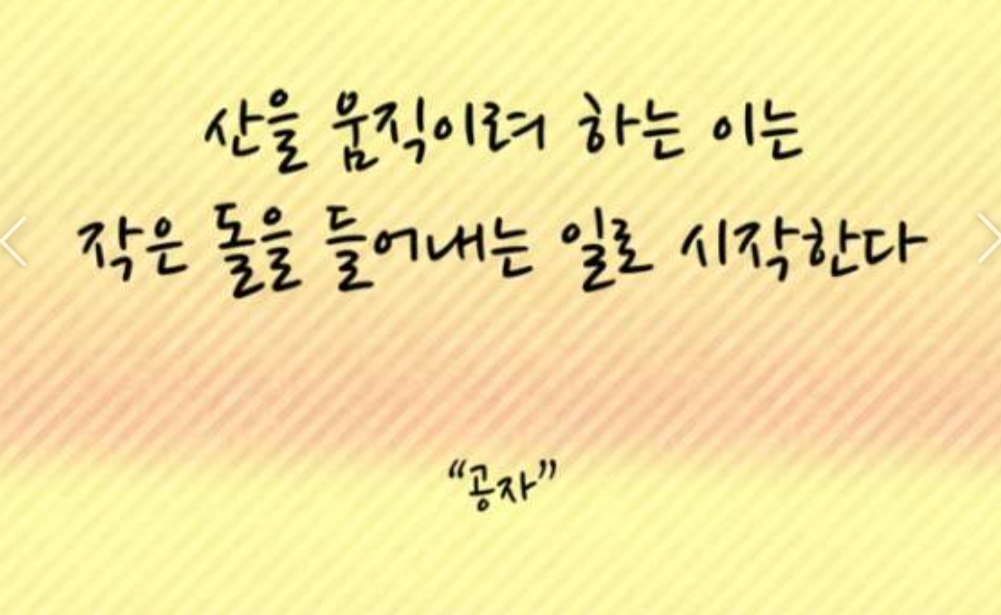 산을 움직이려 하는 이는
작은 돌을 들어내는 일로 시작한다
“공자”